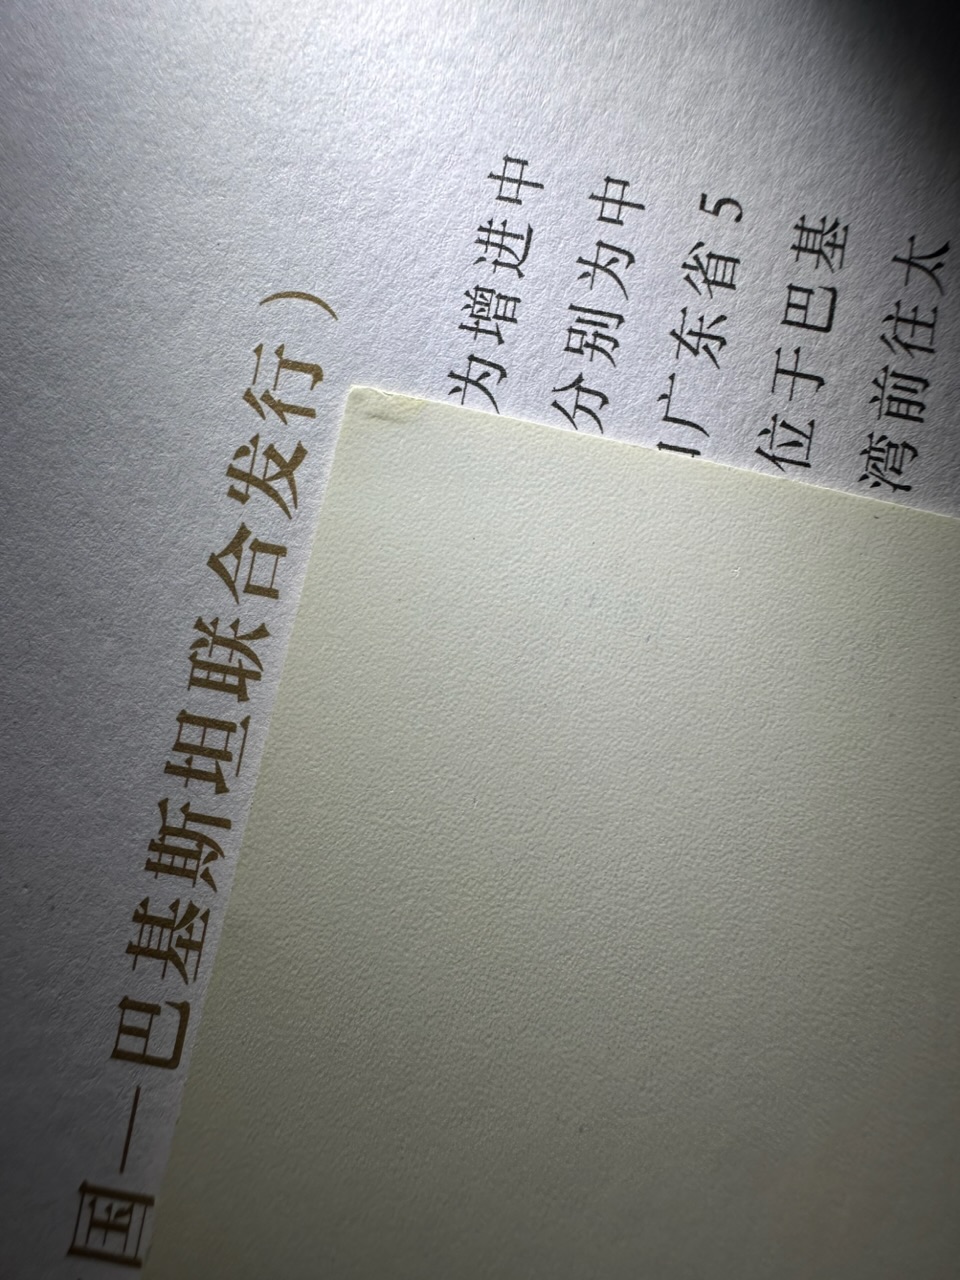 国—巴基斯坦联合发行）
为增进中
分别为中
广东省5
位于巴基
湾前往太